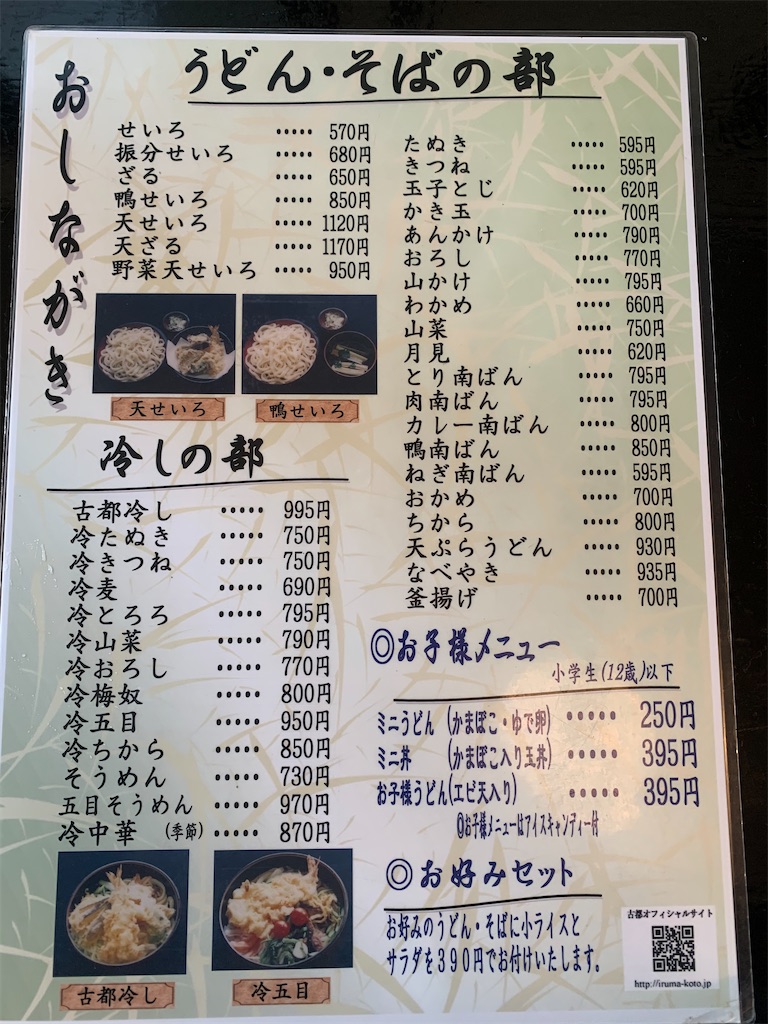 おしながき
うどん・そばの部
せいろ ····· 570円
振分せいろ ····· 680円
ざる ····· 650円
鴨せいろ ····· 850円
天せいろ ····· 1120円
天ざる ····· 1170円
野菜天せいろ ····· 950円
天せいろ
鴨せいろ
たぬき ····· 595円
きつね ····· 595円
玉子とじ ····· 620円
かき玉 ····· 700円
あんかけ ····· 790円
おろし ····· 770円
山かけ ····· 795円
わかめ ····· 660円
山菜 ····· 750円
月見 ····· 620円
とり南ばん ····· 795円
肉南ばん ····· 795円
カレー南ばん ····· 800円
鴨南ばん ····· 850円
ねぎ南ばん ····· 595円
おかめ ····· 700円
ちから ····· 800円
天ぷらうどん ····· 930円
なべやき ····· 935円
釜揚げ ····· 700円
冷しの部
古都冷し ····· 995円
冷たぬき ····· 750円
冷きつね ····· 750円
冷麦 ····· 690円
冷とろろ ····· 795円
冷山菜 ····· 790円
冷おろし ····· 770円
冷梅奴 ····· 800円
冷五目 ····· 950円
冷ちから ····· 850円
そうめん ····· 730円
五目そうめん ····· 970円
冷中華 (季節) ····· 870円
古都冷し
冷五目
◎お子様メニュー
小学生(12歳)以下
ミニうどん (かまぼこ・ゆで卵) ····· 250円
ミニ丼 (かまぼこ入り玉丼) ····· 395円
お子様うどん(エビ天入り) ····· 395円
◎お子様メニューはアイスキャンディー付
◎お好みセット
お好みのうどん・そばに小ライスと
サラダを390円でお付けいたします。
古都オフィシャルサイト
http://iruma-koto.jp